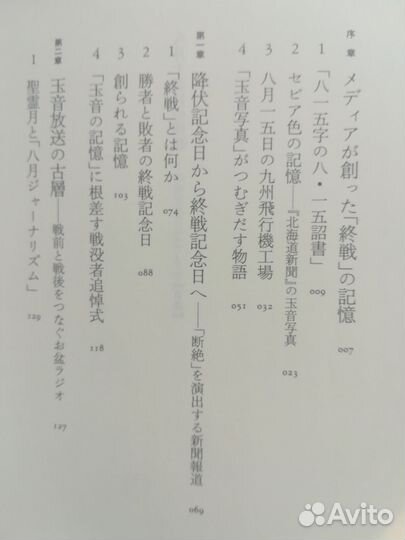 序章 メディアが創った「終戦」の記憶 007
1 「八一五字の八・一五詔書」 009
2 セピア色の記憶――『北海道新聞』の玉音写真 023
3 八月一五日の九州飛行機工場 032
4 「玉音写真」がつむぎだす物語 051
第一章 降伏記念日から終戦記念日へ――「断絶」を演出する新聞報道 069
1 「終戦」とは何か 074
2 勝者と敗者の終戦記念日 088
3 創られる記憶 103
4 「玉音の記憶」に根差す戦没者追悼式 118
第二章 玉音放送の古層――戦前と戦後をつなぐお盆ラジオ 127
1 聖霊月と「八月ジャーナリズム」 129
Avito